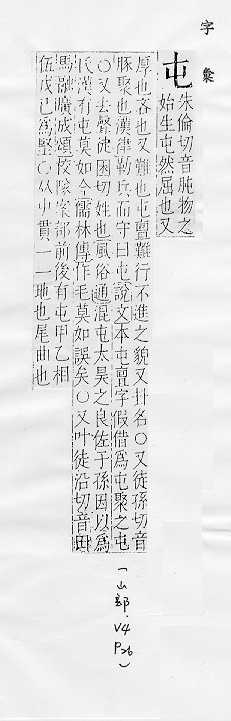 字彙
屯
朱倫切音肫物之
始生屯然屈也又
厚也吝也又難也屯亶難行不進之貌又卦名○又徒孫切音
豚聚也漢律勒兵而守曰屯說文本屯亶字假借爲屯聚之屯
○又去聲徒困切姓也風俗通混屯太昊之良佐子孫因以爲
氏漢有屯莫如今儒林傳作毛莫如誤矣○又叶徒沿切音田
馬融廣成頌校隊案部前後有屯甲乙相
伍戊己爲堅○从屮貫一一地也尾曲也
(山部.V4 P26)